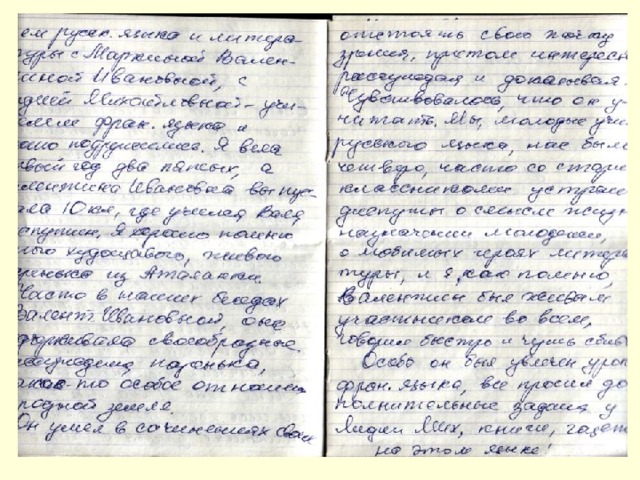 ем русск. языка и литера-
туры с Маркиной Вален-
тиной Ивановной, с
идией Михайловной - учи-
телем фран. языка и
подружились. Я вела
вый год два пятых, а
лентина Ивановна выпус-
ала 10 кл, где учился Валя
спутин. Я хорошо помню
ого худощавого, живого
ренька из Аталанки.
Часто в наших беседах
Валент Ивановной, она
свообразные
паренька,
како-то особое отношен
родной земле.
Он умел в сочинениях свои
отстоять свою точку
зрения, притом интересн
рассуждая и доказывая.
Чувствовалось, что он у-
читает. Мы, молодые учи
русского языка, нас было
четверо, часто со старш
классниками устраив
диспуты о смысле жизн
назначении молодежи,
о любимых героях литера
туры, и я, как помню,
Валентин был живым
участником во всем,
говорил быстро и чуть сбив
Особо он был увлечен урок
фран. языка, все просил до
полнительные задания у
Лидии Мих, книги, газет
на этом языке!